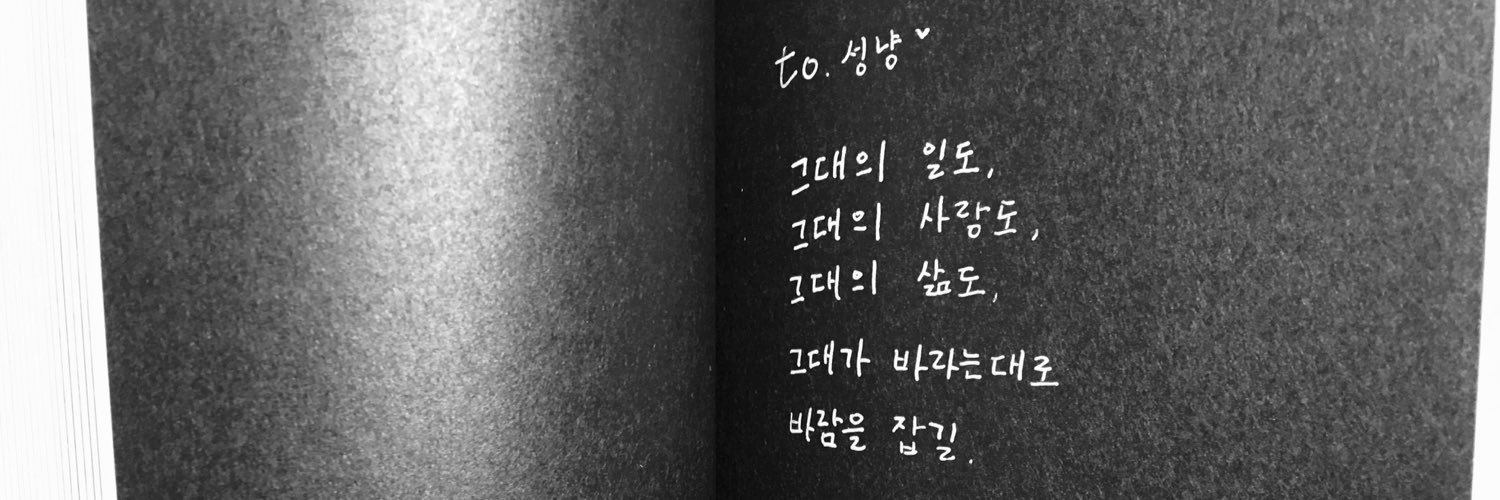 to. 성냥♥
그대의 일도,
그대의 사람도,
그대의 삶도,
그대가 바라는대로
바람을 잡길.